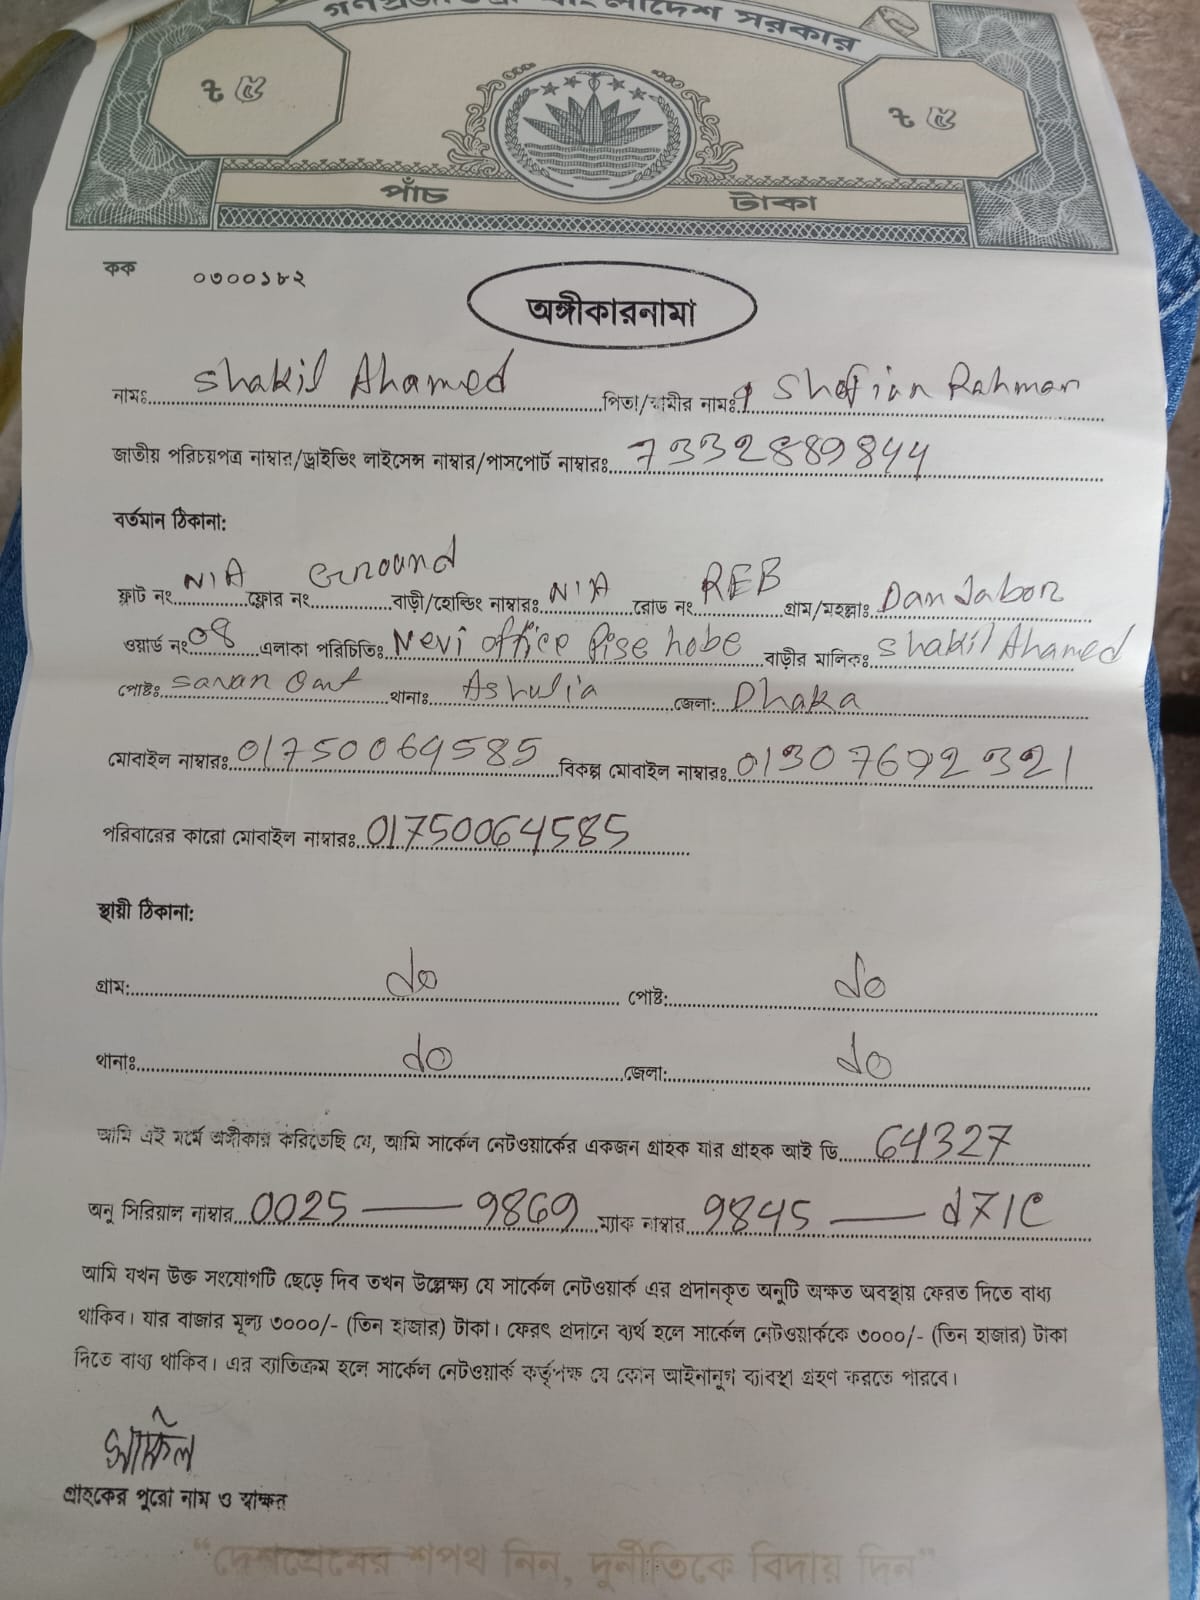 গণপ্রজাতন্ত্রী বাংলাদেশ সরকার
৳ ৫ ৳ ৫
পাঁচ টাকা
কক ০৩০০১৮২
অঙ্গীকারনামা
নামঃ Shakil Ahamed পিতা/স্বামীর নামঃ Shofian Rahman
জাতীয় পরিচয়পত্র নাম্বার/ড্রাইভিং লাইসেন্স নাম্বার/পাসপোর্ট নাম্বারঃ 7332889844
বর্তমান ঠিকানা:
ফ্লাট নং N/A ফ্লোর নং Ground বাড়ী/হোল্ডিং নাম্বারঃ N/A রোড নং REB গ্রাম/মহল্লাঃ Dandabor
ওয়ার্ড নং 08 এলাকা পরিচিতিঃ Nevi office Pise hobe বাড়ীর মালিকঃ Shakil Ahamed
পোষ্টঃ Savan Cant থানাঃ Ashulia জেলা: Dhaka
মোবাইল নাম্বারঃ 01750064585 বিকল্প মোবাইল নাম্বারঃ 01307692321
পরিবারের কারো মোবাইল নাম্বারঃ 01750064585
স্থায়ী ঠিকানা:
গ্রাম: do পোষ্ট: do
থানাঃ do জেলা: do
আমি এই মর্মে অঙ্গীকার করিতেছি যে, আমি সার্কেল নেটওয়ার্কের একজন গ্রাহক যার গ্রাহক আই ডি 64327
অনু সিরিয়াল নাম্বার 0025 — 9869 ম্যাক নাম্বার 9845 — d71C
আমি যখন উক্ত সংযোগটি ছেড়ে দিব তখন উল্লেক্ষ্য যে সার্কেল নেটওয়ার্ক এর প্রদানকৃত অনুটি অক্ষত অবস্থায় ফেরত দিতে বাধ্য
থাকিব। যার বাজার মূল্য ৩০০০/- (তিন হাজার) টাকা। ফেরৎ প্রদানে ব্যর্থ হলে সার্কেল নেটওয়ার্ককে ৩০০০/- (তিন হাজার) টাকা
দিতে বাধ্য থাকিব। এর ব্যাতিক্রম হলে সার্কেল নেটওয়ার্ক কর্তৃপক্ষ যে কোন আইনানুগ ব্যাবস্থা গ্রহণ করতে পারবে।
শাকিল
গ্রাহকের পুরো নাম ও স্বাক্ষর
“দেশপ্রেমের শপথ নিন, দুর্নীতিকে বিদায় দিন”